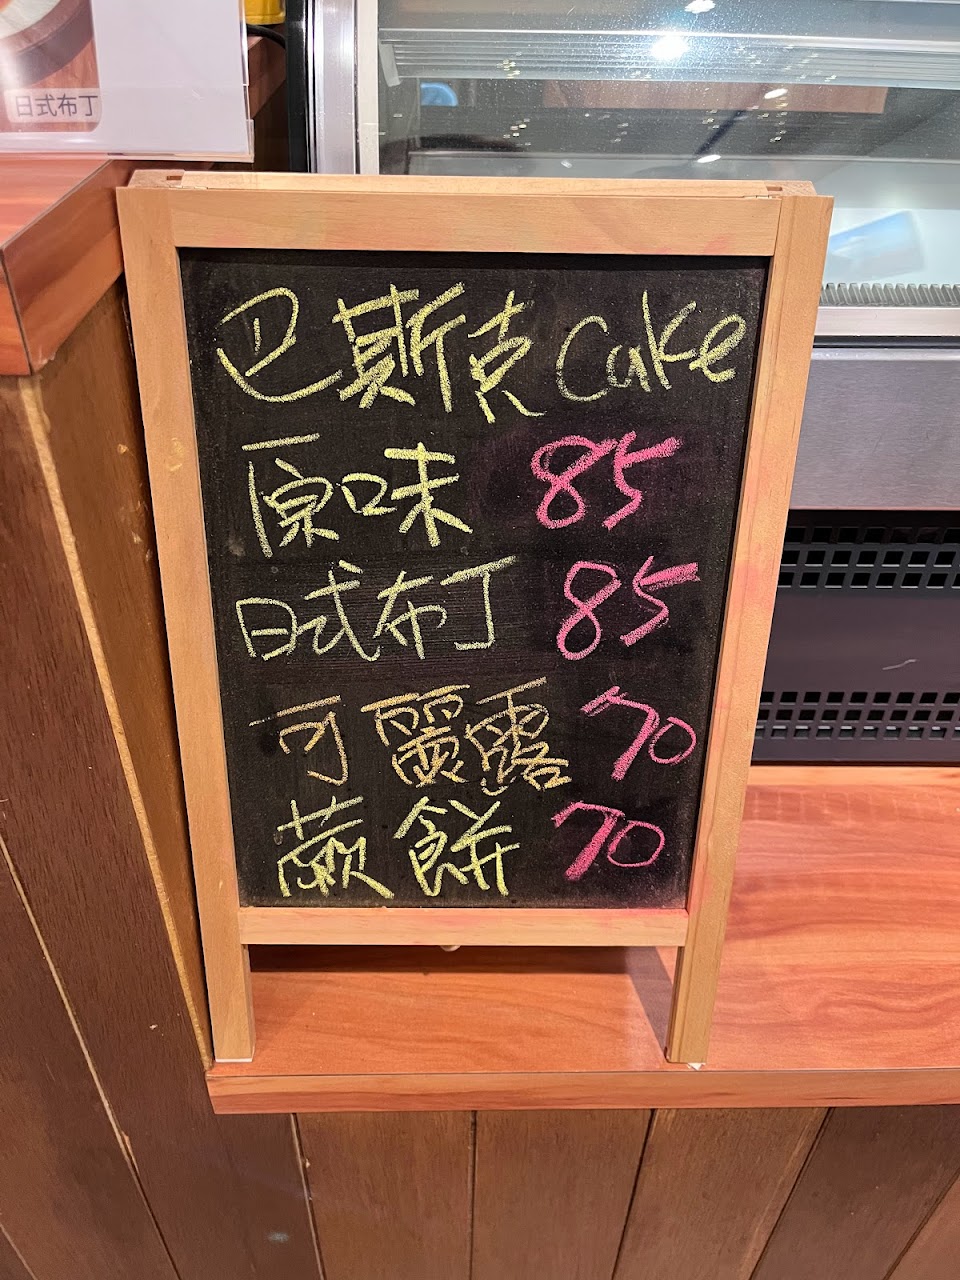 日式布丁
巴斯克 Cake
原味 85
日式布丁 85
可麗露 70
蕨餅 70